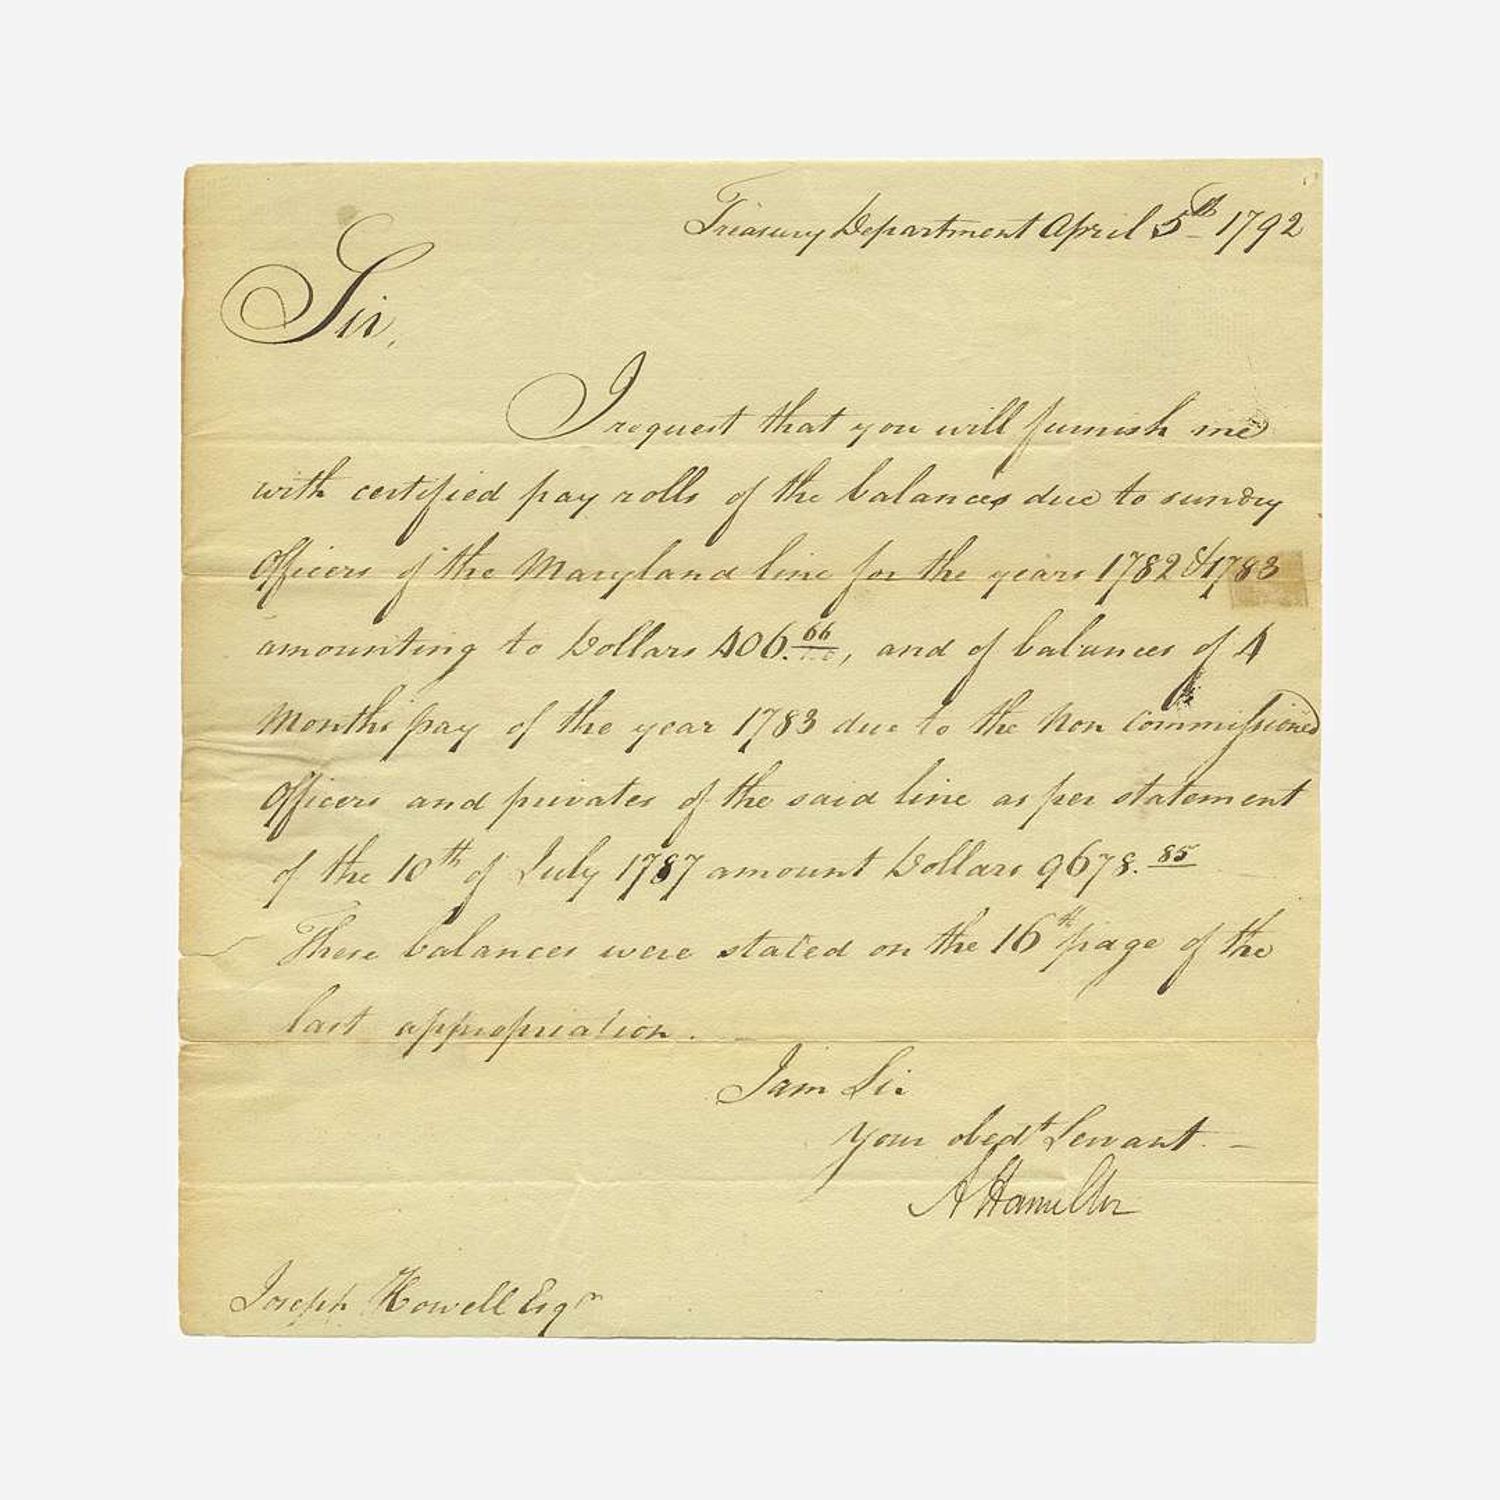 Treasury Department April 5th 1792
Sir,
I request that you will furnish me
with certified pay rolls of the balances due to sundry
Officers of the Maryland line for the years 1782 & 1783
amounting to Dollars 406.66/100, and of balances of 4
Months pay of the year 1783 due to the Non Commissioned
Officers and privates of the said line as per statement
of the 10th of July 1787 amount Dollars 9678.85
These balances were stated on the 16th page of the
last appropriation.
I am Sir
Your obedt Servant.
A Hamilton
Joseph Howell Esqr